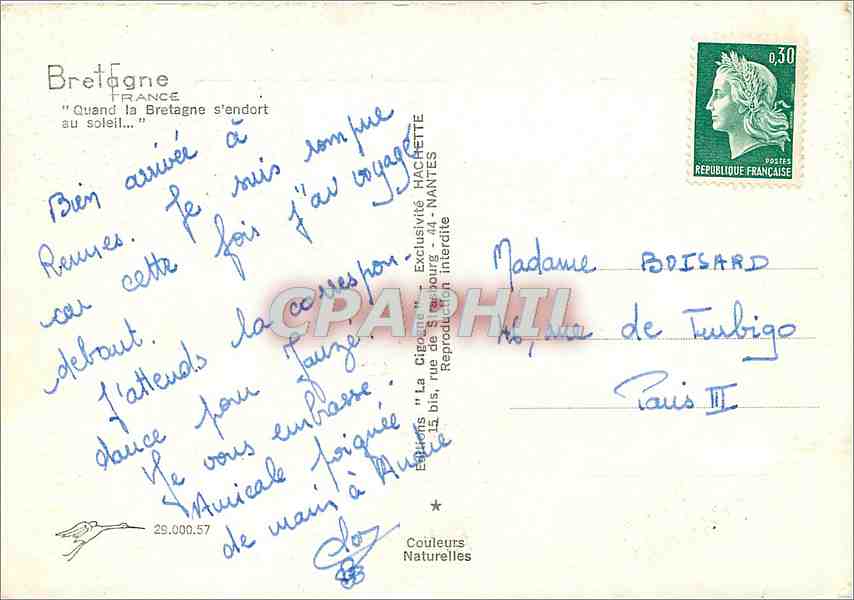 Bretagne
FRANCE
"Quand la Bretagne s'endort
au soleil..."
Bien arrivée à
Rennes. Je suis rompue
car cette fois j'ai voyagé
debout.
J'attends la correspon-
dance pour Janzé.
Je vous embrasse.
Amicale poignée
de main à
Editions "La Cigogne" - Exclusivité HACHETTE
15 bis, rue de Strasbourg - 44 - NANTES
Reproduction interdite
0,30
POSTES
REPUBLIQUE FRANÇAISE
Madame BOISARD
46, rue de Turbigo
Paris III
CPAPHIL
29.000.57
Couleurs
Naturelles